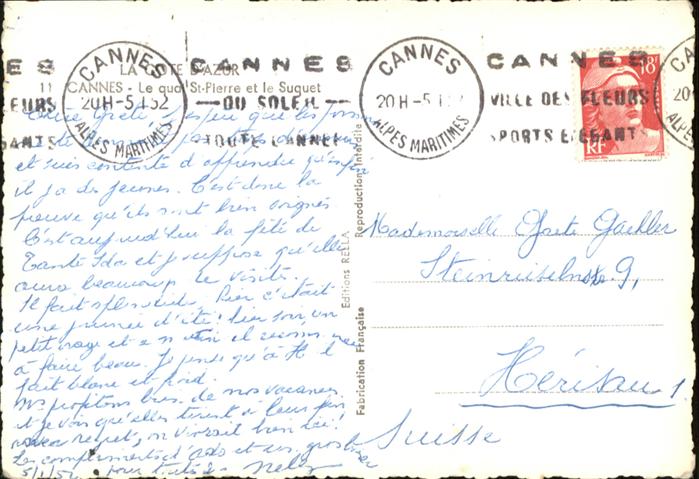 LA CÔTE D'AZUR
11 CANNES - Le quai St-Pierre et le Suquet
CANNES
20H-5 1 52
ALPES MARITIMES
CANNES
DU SOLEIL
TOUTE L'ANNEE
CANNES
20H-5 1 52
ALPES MARITIMES
CANNES
VILLE DES FLEURS
SPORTS ELEGANTS
18F
RF
ES
EURS
GANTS
20
Chère Grete, que les
et suis contente d'apprendre
il y a des jeunes. C'est donc la
preuve qu'ils sont bien soignés
C'est aujourd'hui la fête de
Tante Ida et je suppose qu'elle
aura beaucoup de visite.
Il fait splendide. Hier c'était
une journée d'été! hier soir un
petit orage et ce matin il recommence
à faire beau. Je pense qu'à H. il
fait blanc et froid.
Ns profitons bien de nos vacances
et je vois qu'elles tirent à leur fin
avec regret, on vivrait bien ici!
Les compliments d' et un gros baiser
5/1/52 pour toi de Nelly
Editions RELLA
Reproduction Interdite
Fabrication Française
Mademoiselle Grete Gaehler
9,
Hérisau
Suisse